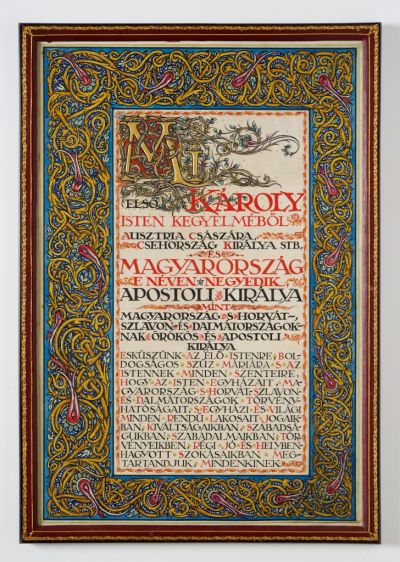 MI
ELSŐ KÁROLY
ISTEN KEGYELMÉBŐL
AUSZTRIA CSÁSZÁRA,
CSEHORSZÁG KIRÁLYA STB.
ÉS
MAGYARORSZÁG
E NÉVEN NEGYEDIK
APOSTOLI KIRÁLYA
MINT
MAGYARORSZÁG S HORVÁT-
SZLAVON ÉS DALMÁTORSZÁGOK-
NAK ÖRÖKÖS ÉS APOSTOLI
KIRÁLYA
ESKÜSZÜNK AZ ÉLŐ ISTENRE, BOL-
DOGSÁGOS SZŰZ MÁRIÁRA S AZ
ISTENNEK MINDEN SZENTEIRE,
HOGY AZ ISTEN EGYHÁZAIT, MA-
GYARORSZÁG S HORVÁT-SZLAVON
ÉS DALMÁTORSZÁGOK TÖRVÉNY-
HATÓSÁGAIT, S EGYHÁZI ÉS VILÁGI
MINDEN RENDŰ LAKOSAIT, JOGAIK-
BAN, KIVÁLTSÁGAIKBAN, SZABADSÁ-
GUKBAN, SZABADALMAIKBAN, TÖR-
VÉNYEIKBEN, RÉGI JÓ ÉS HELYBEN-
HAGYOTT SZOKÁSAIKBAN MEG-
TARTANDJUK, MINDENKINEK